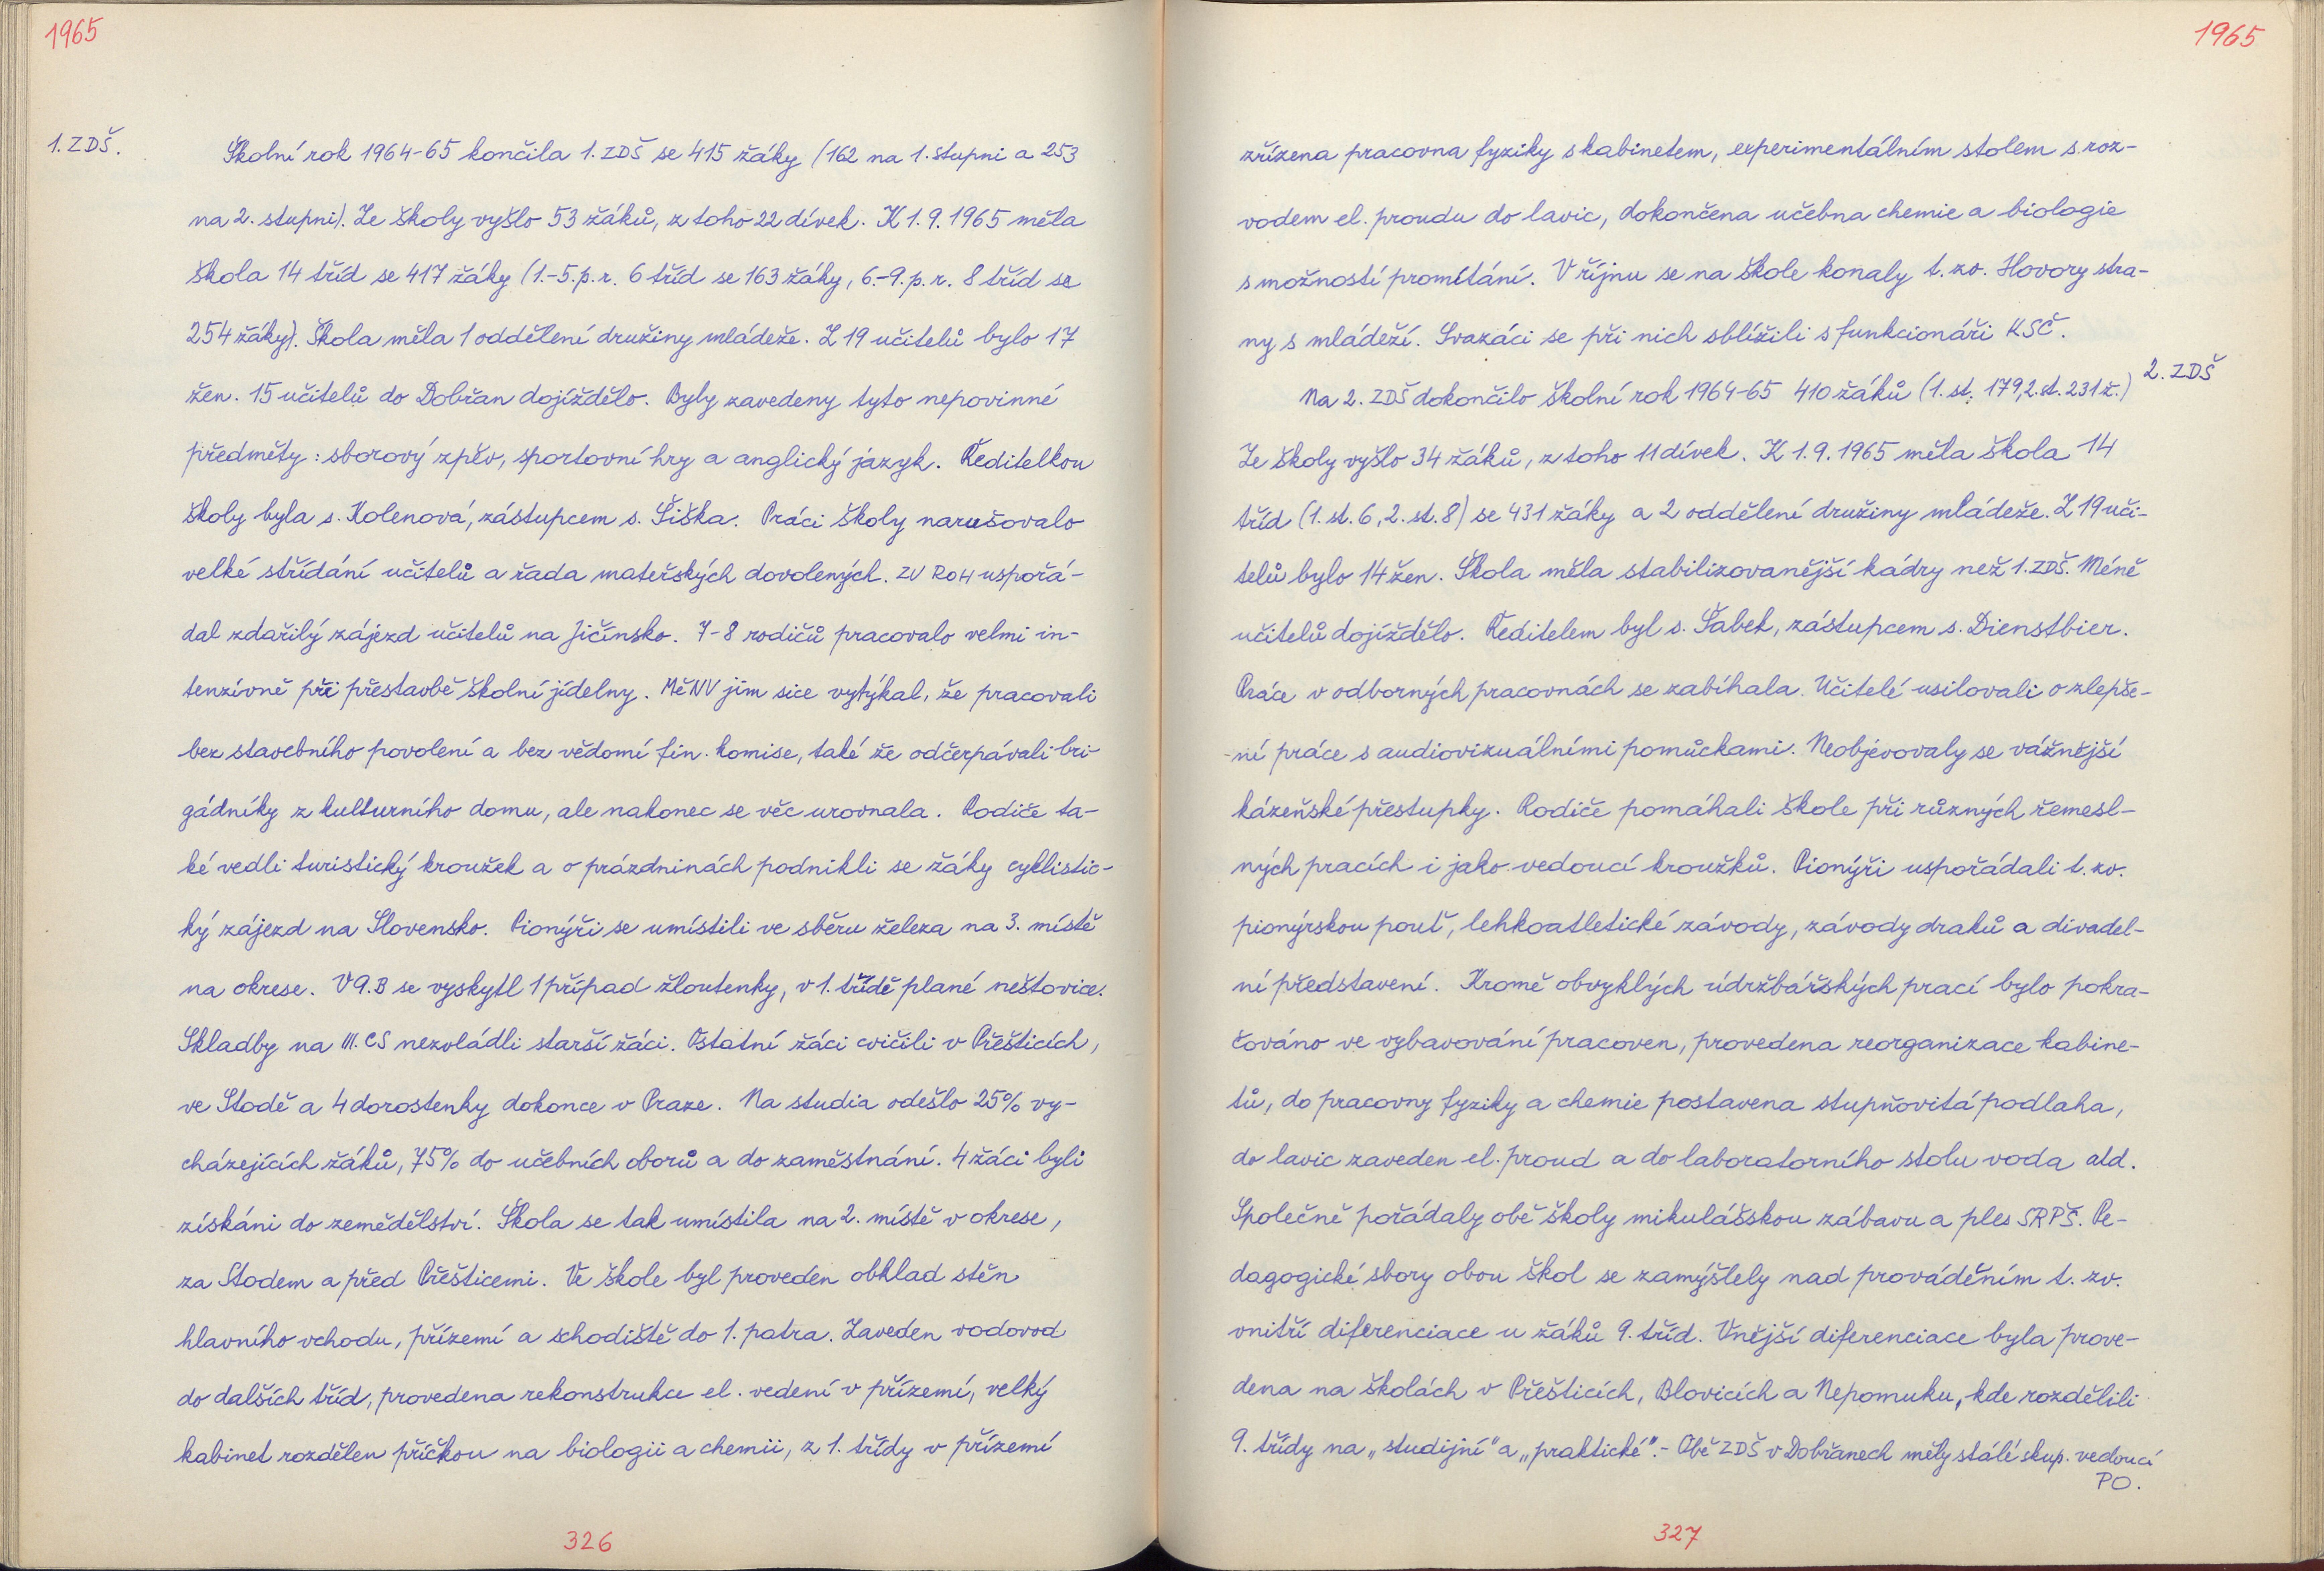 1965
1. ZDŠ.
Školní rok 1964-65 končila 1. ZDŠ se 415 žáky (162 na 1. stupni a 253
na 2. stupni). Ze školy vyšlo 53 žáků, z toho 22 dívek. K 1. 9. 1965 měla
škola 14 tříd se 417 žáky (1.-5. p. r. 6 tříd se 163 žáky, 6.-9. p. r. 8 tříd se
254 žáky). Škola měla 1 oddělení družiny mládeže. Z 19 učitelů bylo 17
žen. 15 učitelů do Dobřan dojíždělo. Byly zavedeny tyto nepovinné
předměty: sborový zpěv, sportovní hry a anglický jazyk. Ředitelkou
školy byla s. Kolenová, zástupcem s. Šiška. Práci školy narušovalo
velké střídání učitelů a řada mateřských dovolených. ZV ROH uspořá-
dal zdařilý zájezd učitelů na Jičínsko. 7-8 rodičů pracovalo velmi in-
tenzívně při přestavbě školní jídelny. MěNV jim sice vytýkal, že pracovali
bez stavebního povolení a bez vědomí fin. komise, také že odčerpávali bri-
gádníky z kulturního domu, ale nakonec se věc urovnala. Rodiče ta-
ké vedli turistický kroužek a o prázdninách podnikli se žáky cyklistic-
ký zájezd na Slovensko. Pionýři se umístili ve sběru železa na 3. místě
na okrese. V 9.B se vyskytl 1 případ žloutenky, v 1. třídě plané neštovice.
Skladby na III. CS nezvládli starší žáci. Ostatní žáci cvičili v Přešticích,
ve Stodě a 4 dorostenky dokonce v Praze. Na studia odešlo 25% vy-
cházejících žáků, 75% do učebních oborů a do zaměstnání. 4 žáci byli
získáni do zemědělství. Škola se tak umístila na 2. místě v okrese,
za Stodem a před Přešticemi. Ve škole byl proveden obklad stěn
hlavního vchodu, přízemí a schodiště do 1. patra. Zaveden vodovod
do dalších tříd, provedena rekonstrukce el. vedení v přízemí, velký
kabinet rozdělen příčkou na biologii a chemii, z 1. třídy v přízemí
326
1965
zřízena pracovna fyziky s kabinetem, experimentálním stolem s roz-
vodem el. proudu do lavic, dokončena učebna chemie a biologie
s možností promítání. V říjnu se na škole konaly t. zv. Hovory stra-
ny s mládeží. Svazáci se při nich sblížili s funkcionáři KSČ.
2. ZDŠ
Na 2. ZDŠ dokončilo školní rok 1964-65 410 žáků (1. st. 179, 2. st. 231 ž.)
Ze školy vyšlo 34 žáků, z toho 11 dívek. K 1. 9. 1965 měla škola 14
tříd (1. st. 6, 2. st. 8) se 431 žáky a 2 oddělení družiny mládeže. Z 19 uči-
telů bylo 14 žen. Škola měla stabilizovanější kádry než 1. ZDŠ. Méně
učitelů dojíždělo. Ředitelem byl s. Šabek, zástupcem s. Dienstbier.
Práce v odborných pracovnách se zabíhala. Učitelé usilovali o zlepše-
-ní práce s audiovizuálními pomůckami. Neobjevovaly se vážnější
kázeňské přestupky. Rodiče pomáhali škole při různých řemesl-
ných pracích i jako vedoucí kroužků. Pionýři uspořádali t. zv.
pionýrskou pouť, lehkoatletické závody, závody draků a divadel-
ní představení. Kromě obvyklých údržbářských prací bylo pokra-
čováno ve vybavování pracoven, provedena reorganizace kabine-
tů, do pracovny fyziky a chemie postavena stupňovitá podlaha,
do lavic zaveden el. proud a do laboratorního stolu voda atd.
Společně pořádaly obě školy mikulášskou zábavu a ples SRPŠ. Pe-
dagogické sbory obou škol se zamýšlely nad prováděním t. zv.
vnitří diferenciace u žáků 9. tříd. Vnější diferenciace byla prove-
dena na školách v Přešticích, Blovicích a Nepomuku, kde rozdělili
9. třídy na „studijní" a „praktické". - Obě ZDŠ v Dobřanech měly stálé skup. vedoucí
PO.
327